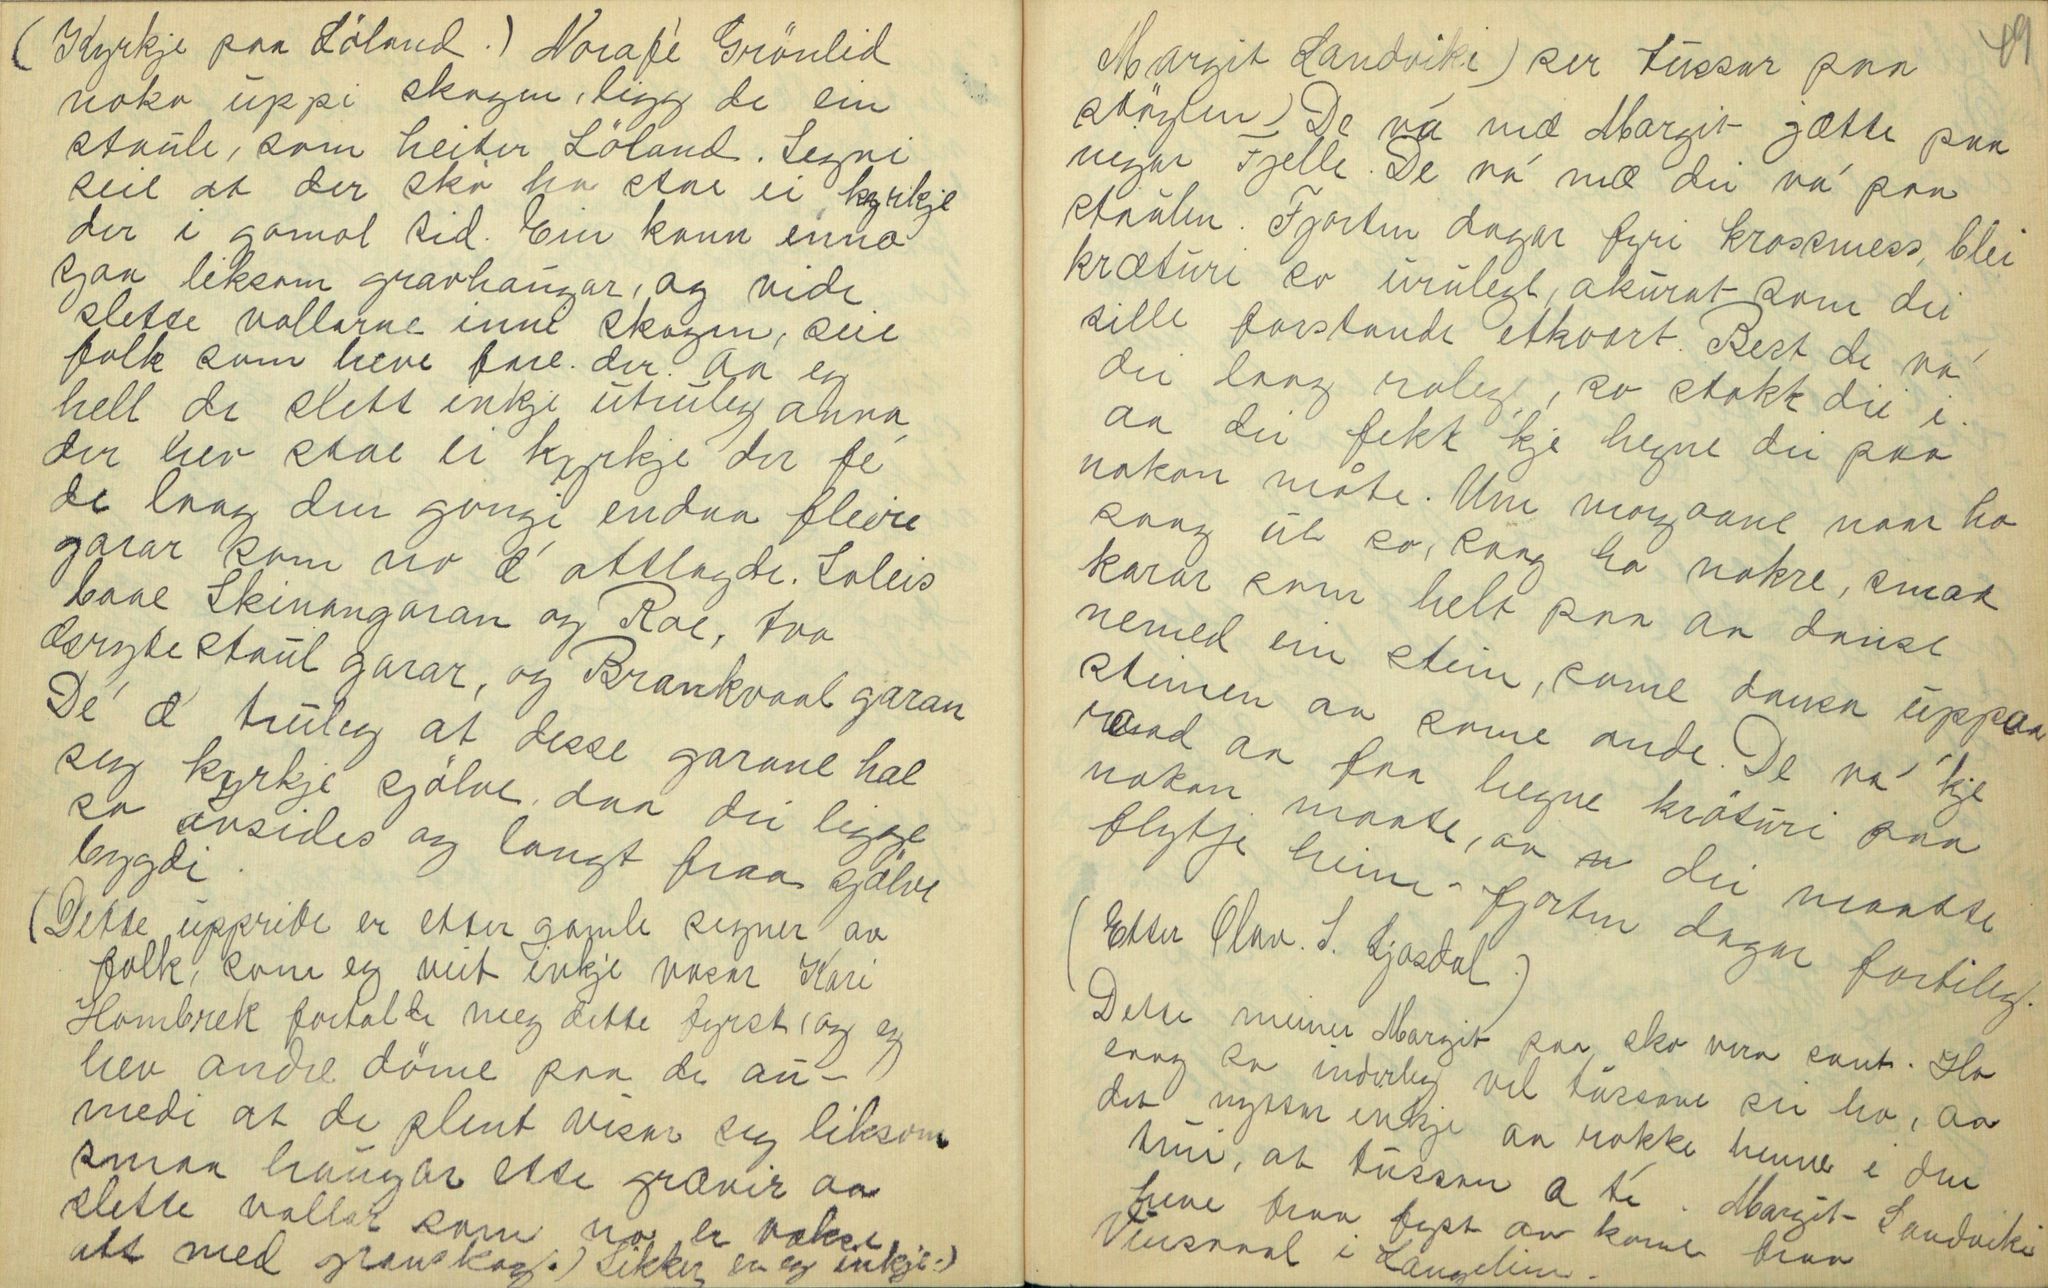 (Kyrkje paa Löland.) Norafé Grönlid
noko uppi skogen, ligg de ein
staule, som heiter Löland. Segni
seie at der sko ha stae ei kyrkje
der i gomol tid. Ein kann enno
sjaa liksom gravhaugar, og vide
slette vollarne inne skogen, seie
folk som heve fare der. Aa eg
hell de slett inkje utruleg anna,
der hev stae ei kyrkje der fe
de laag den gongi endaa fleire
garar som no æ attlagde. Soleis
baae Skinangaran og Roe, tvo
Æsrytestaul garar, og Brankvaal garan
De' æ' truleg at desse garane hae
seg kyrkje sjölve, daa dei ligge
so avsides og langt fraa sjölve
bygdi.
(Dette uppritte er etter gamle segner av
folk, som eg veit inkje visar Kari
Hombrek fortalde meg dette fyrst, og eg
hev andre döme paa de au-
medi at de plent visar seg liksom
smaa haugar ette grævir aa
slette vollar som no er vakse
att med granskog.) Sikker er eg inkje.)
49
Margit Sandviki) ser tussar paa
stöylen) De va mæ Margit gjætte paa
negar Fjelle. De va' mæ dei va' paa
staulen. Fjorten dagar fyri krossmess, blei
kræturi so urulegt, akurat som dei
sille forstande etkvort. Best de va'
dei laag roleg, so stokk dei i
aa dei fekk 'kje hegne dei paa
nokon måte. Um morgoane naar ho
saag ut so, saag ho nokre, smaa
karar som helt paa aa danse
nemed ein stein, some dansa uppaa
steinen aa some ande. De va' 'kje
raad aa faa hegne kröturi paa
nokon maate, aa dei maatte
flytje heim fjorten dagar fortileg.
(Etter Olav. S. Gjosdal.)
Dette meiner Margit paa sko vera sant. Ho
saag so inderleg vel tussane sei ho, aa
det nyttar inkje aa rokke henne i den
trui, at tussan æ te. Margit Sandviki
heve fraa fyst av kome fraa
Vinsvaal i Langelim.